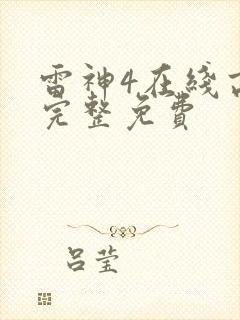 雷神4在线
完整免费
吕莹